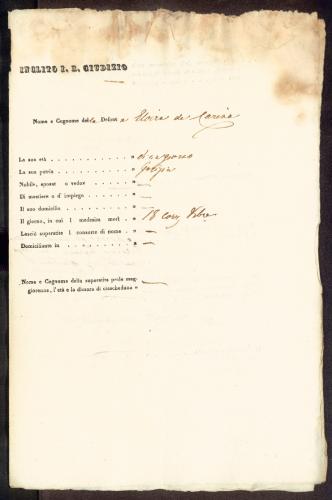 INCLITO I. R. GIUDIZIO
Nome e Cognome della Defunta Elvira de
La sua età . . . . . . . . . . » d'un giorno
La sua patria . . . . . . . . . »
Nubile, sposat o vedov . . . . . » —
Di mestiere o d'impiego . . . . . » —
Il suo domicilio . . . . . . . . » —
Il giorno, in cui l medesim morì . . » 18 corr.
Lasciò superstite l consorte di nome . . » —
Domiciliante in . . . . . . . . » —
Nome e Cognome della superstite prole mag-
giorenne, l'età e la dimora di ciascheduno » —